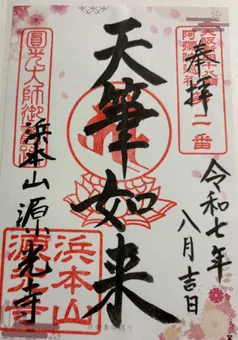 奉拝
二番
令和七年
八月吉日
天筆如来
圓光大師御
浜本山源光寺
浜本山
源光寺